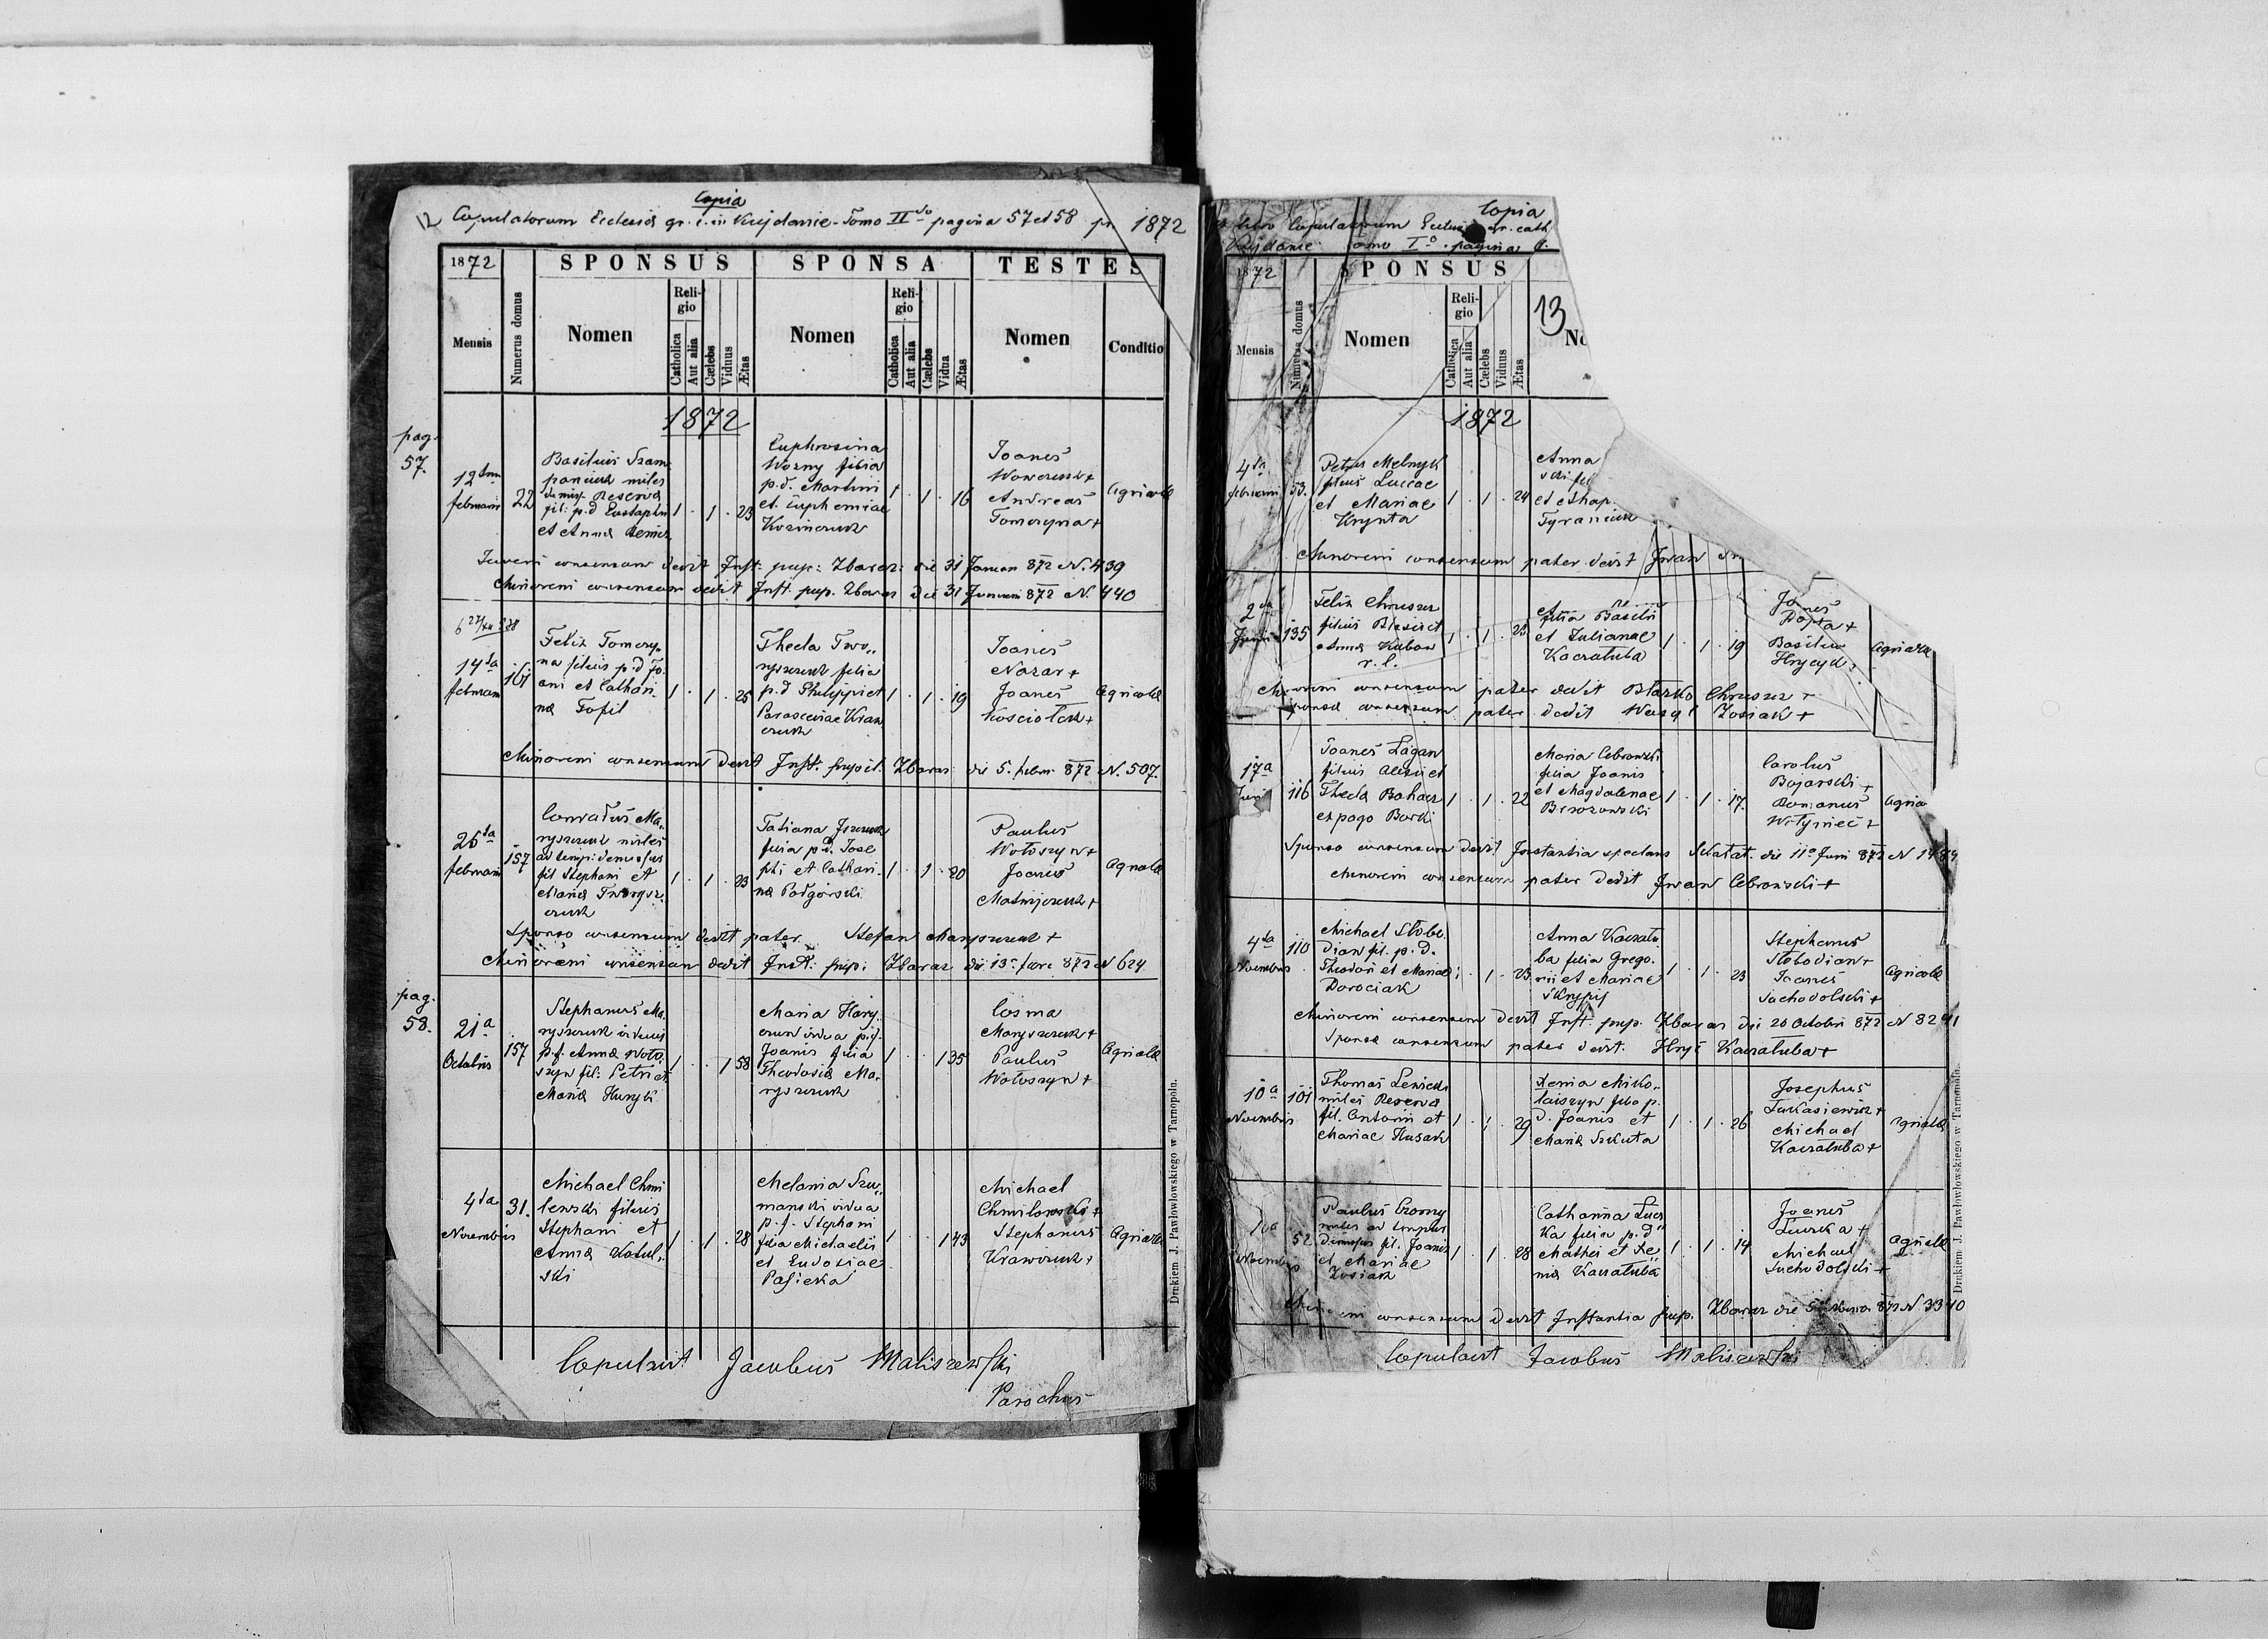 Copia
12 Copulatorum Ecclesiæ gr. c. in Kujdanie - Tomo II do pagina 57 et 58 pr 1872
1872 SPONSUS SPONSA TESTES
Mensis
Numerus domus
Nomen
Religio
Catholica
Aut alia
Cælebs
Viduus
Ætas
Nomen
Religio
Catholica
Aut alia
Cælebs
Vidua
Ætas
Nomen
Conditio
1872
pag. 57.
12
februarii
22
Basilius Szam
paniuk miles
dimiss. Reserva
fil: p.d Eustaphii
et Anna
1 . 1 . 23
Euphrosina
Wozny filia
p.d. Martini
et Euphemiae
1 . 1 . 16
Joanes
+
Andreas
Tomczyna +
Agricola
Juveni consensum dedit Inst. pup: Zbaraz: die 31 Januar 872 N. 439
Minoreni consensum dedit Inst. pup. Zbaraz die 31 Januari 872 N. 440
14ta
februarii
161
Felix Tomczy„
na filius p.d Jo
ani et Cathari
na Tofil
1 . 1 . 25
Thecla Two„
ryszczuk filia
p.d Philippi et
Parasceviae Kraw
czuk
1 . 1 . 19
Joanes
Nazar +
Joanes
Kosciolek +
Agricola
Minoreni consensum dedit Inst. pupil. Zbaraz die 5. febr. 872 N. 507.
25ta
februarii
157
Conratus Ma„
ryszczuk miles
ad temp: demissus
fil Stephani et
Maria Tworysz.
czuk
1 . 1 . 23
Tatiana
filia p.d. Jose
phi et Cathari.
na Podgórski
1 . 1 . 20
Paulus
Wołoszyn +
Joanes
Matwijczuk +
Agricola
Sponso consensum dedit pater Stefan Maryszczuk +
Minoreni consensum dedit Inst: pup: Zbaraz die 13 febr. 872 N 624
pag. 58.
21a
Octobris
157
Stephanus Ma.
ryszczuk viduus
p.f. Anna Woło.
szyn fil: Petri et
Maria Huryk
1 . . 1 58
Maria Hary
czun vidua p.f.
Joanis filia
Theodosia Ma.
ryszczuk
1 . . 1 35
Cosma
Maryszczuk +
Paulus
Wołoszyn +
Agricola
4ta
Novembris
31.
Michael Chmi
lewski filius
Stephani et
Anna Kosul.
ski
1 . 1 . 28
Melania Szu„
manski vidua
p.f. Stephani
filia Michaelis
et Eudosiae
Pasieka
1 . . 1 43
Michael
Chmilowski +
Stephanus
Krawczuk +
Agricola
Copulavit Jacobus Maliszewski
Parochus
Drukiem J. Pawłowskiego w Tarnopolu.
Copia
libro Copulatorum Ecclesiæ gr. cath
Kujdanie Tomo I o pagina
1872 SPONSUS
Mensis
Numerus domus
Nomen
Religio
Catholica
Aut alia
Cælebs
Viduus
Ætas
13
1872
4ta
februarii
53.
Petrus Melnyk
filius Lucae
et Mariae
Krynta
1 . 1 . 24
Anna
Minoreni consensum pater dedit Iwan
2da
135
Felix Chruszcz
filius Blasii et
Anna Kubow
r. l.
1 . 1 . 23
filia Basilii
et Julianae
Kaczałuba
1 . 1 . 19
Joanes
+
Basilius
Hrycyk +
Agricola
Minoreni consensum pater dedit Błażko Chruszcz +
Sponsa consensum pater dedit Wasyl Zosiak +
17a
Junii
116
Joanes Lagan
filius Alexii et
Thecla Bohacz
ex pago Borki
1 . 1 . 22
Maria Cebrowski
filia Joanis
et Magdalenae
Brzozowski
1 . 1 . 17.
Carolus
Bojarski +
Romanus
Wołyniec +
Sponso consensum dedit Instantia spectans Skałat. die 11a Juni 872 N 1484
Minoreni consensum pater dedit Iwan Cebrowski +
4ta
Novembris
110
Michael Słobo.
dian fil. p.d.
Theodori et Mariae
Dorociak
1 . 1 . 23
Anna Kaczału.
ba filia Grego.
rii et Mariae
Skrypij
1 . 1 . 23
Stephanus
Słobodian +
Joanes
Suchodolski +
Agricola
Minoreni consensum dedit Inst. pup. Zbaraz die 20 Octobri 872 N 8291
Sponsa consensum pater dedit. Hryć Kaczałuba +
10a
Novembris
101
Thomas Lewicki
miles Reserva
fil. Antonii et
Mariae Husak
1 . 1 . 29
Xenia Miko„
łaiszyn filia p.
d. Joanis et
Maria Szkuta
1 . 1 . 26
Josephus
Łukasiewicz +
Michael
Kaczałuba +
Agricola
Novembris
52
Paulus Czorny
miles ad tempus
dimissus fil. Joanis
et Mariae
Zosiak
1 . 1 . 28
Catharina
ka filia p.d
Mathei et Xe„
nia Kaczałuba
1 . 1 . 14
Joanes
+
Michael
Suchodolski +
Agricola
consensum dedit Instantia pup. Zbaraz die 5 872 N 3340
Copulavit Jacobus Maliszewski
Drukiem J. Pawłowskiego w Tarnopolu.